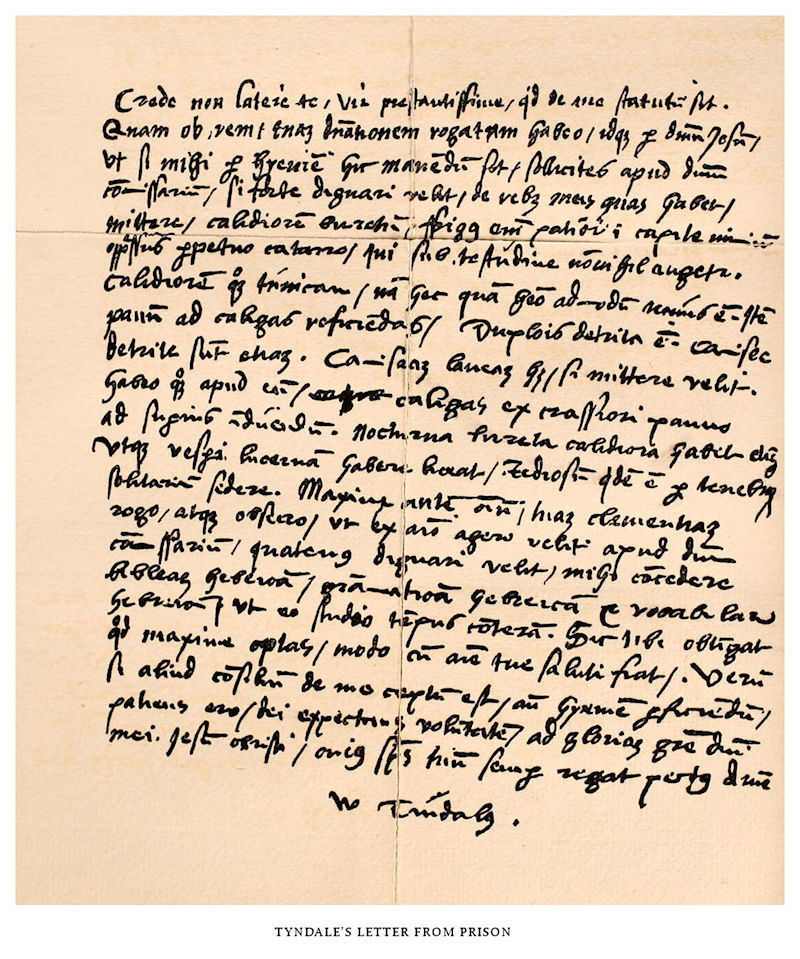 Crede non latere te, vir prestantissime/ qd de me statutū sit.
Quam ob rem/ tuaz dn̄ationem rogatam habeo/ idqz p dnm̄ Jesū/
vt si mihi p hyemē hic manendū sit/ sollicites apud dnm̄
cōmissariū/ si forte dignari velit/ de rebz meis quas habet/
mittere/ calidiorē burethū, ffrig9 em̄ patior ī capite nimiū
opp̄ssus ppetuo catarro/ qui sub testudine nōnihil augetr.
Calidiorē qz tunicam/ nā hec quā heo admodū tenuis ē. Itē
pannū ad caligas reficiēdas/ Duplois detrita ē. camisee
detrite sūt etiaz. Camisaaz laneaz hz/ si mittere velit.
habeo qz apud eū/ caligas ex crassiori panno
ad supius īduēdū. nocturna bireta calidiora habet etiā
vtqz vespi lucernā habere liceat/ Tediosū qdē ē p tenebras
solitariū sedere. Maxime ante oīa/ tuaz clementiaz
rogo/ atqz obsecro/ vt ex aīo agere velit apud dnm̄
cōmissariū/ quatenus dignari velit/ mihi cōcedere
bibleaz hebreicā/ grāmaticā hebreicā & vocabulariū
hebreicū/ vt eo studio tēpus cōterā. Sic tibi obtīgat
qd maxime optas/ modo cū aīe tue saluti fiat/. Verū
si aliud cōsiliū de me ceptū est/ an̄ hyemē pficiēdū/
patiens ero/ dei expectans volūtatē/ ad gloriaz grē dnī
mei. Jesu christi/ cui9 sps̄ tuū semp regat pect9 Amē
W Tindal9.
TYNDALE'S LETTER FROM PRISON